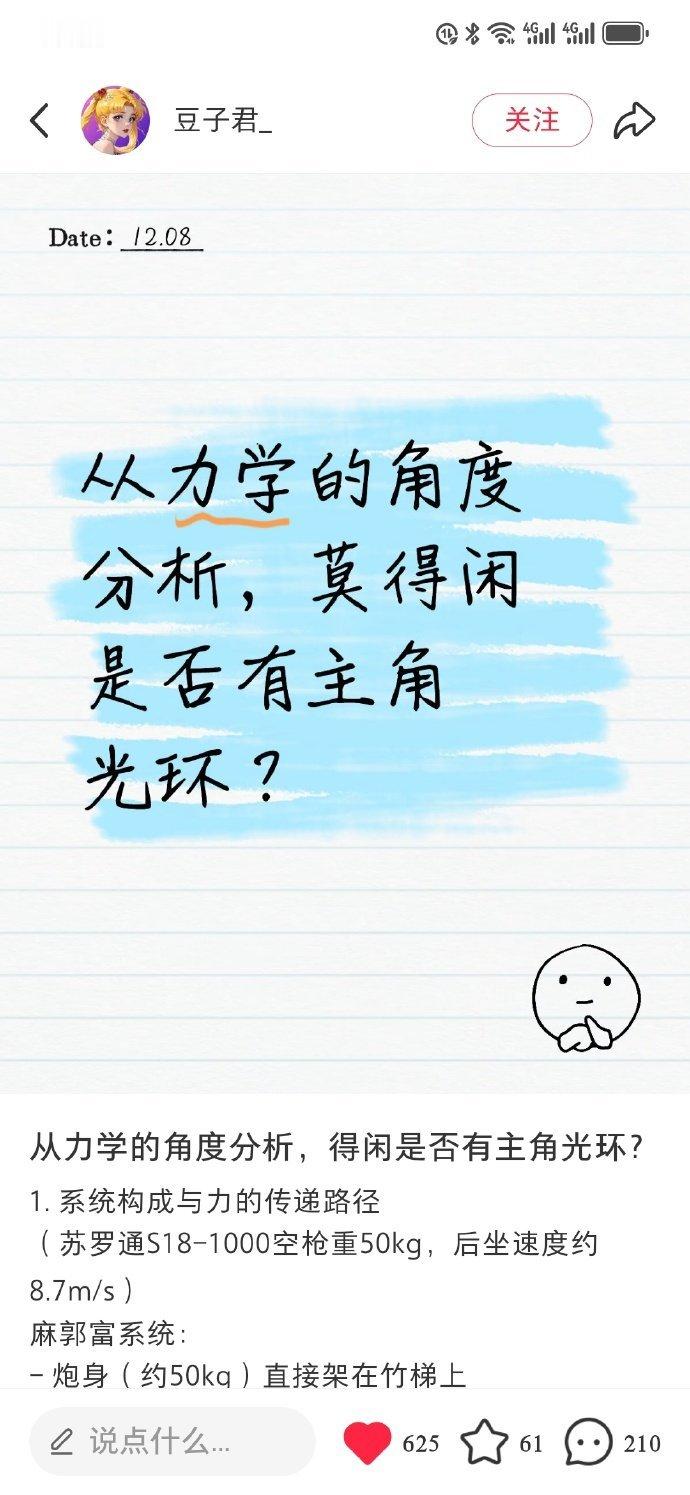 4G 4G
豆子君_
关注
Date: 12.08
从力学的角度
分析，莫得闲
是否有主角
光环？
从力学的角度分析，得闲是否有主角光环？
1. 系统构成与力的传递路径
（苏罗通S18-1000空枪重50kg，后坐速度约
8.7m/s）
麻郭富系统：
- 炮身（约50kg）直接架在竹梯上
说点什么...
625
61
210